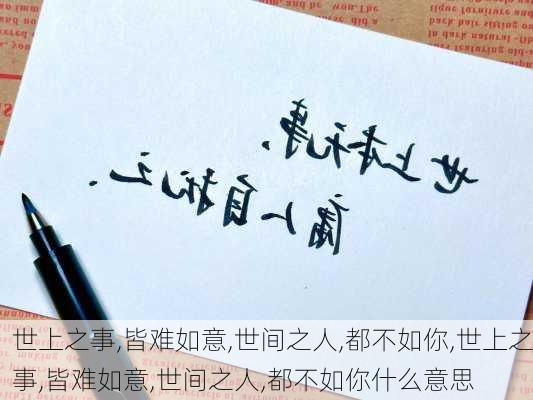 世上本无事.
庸人自扰之.
世上之事,皆难如意,世间之人,都不如你,世上之
事,皆难如意,世间之人,都不如你什么意思